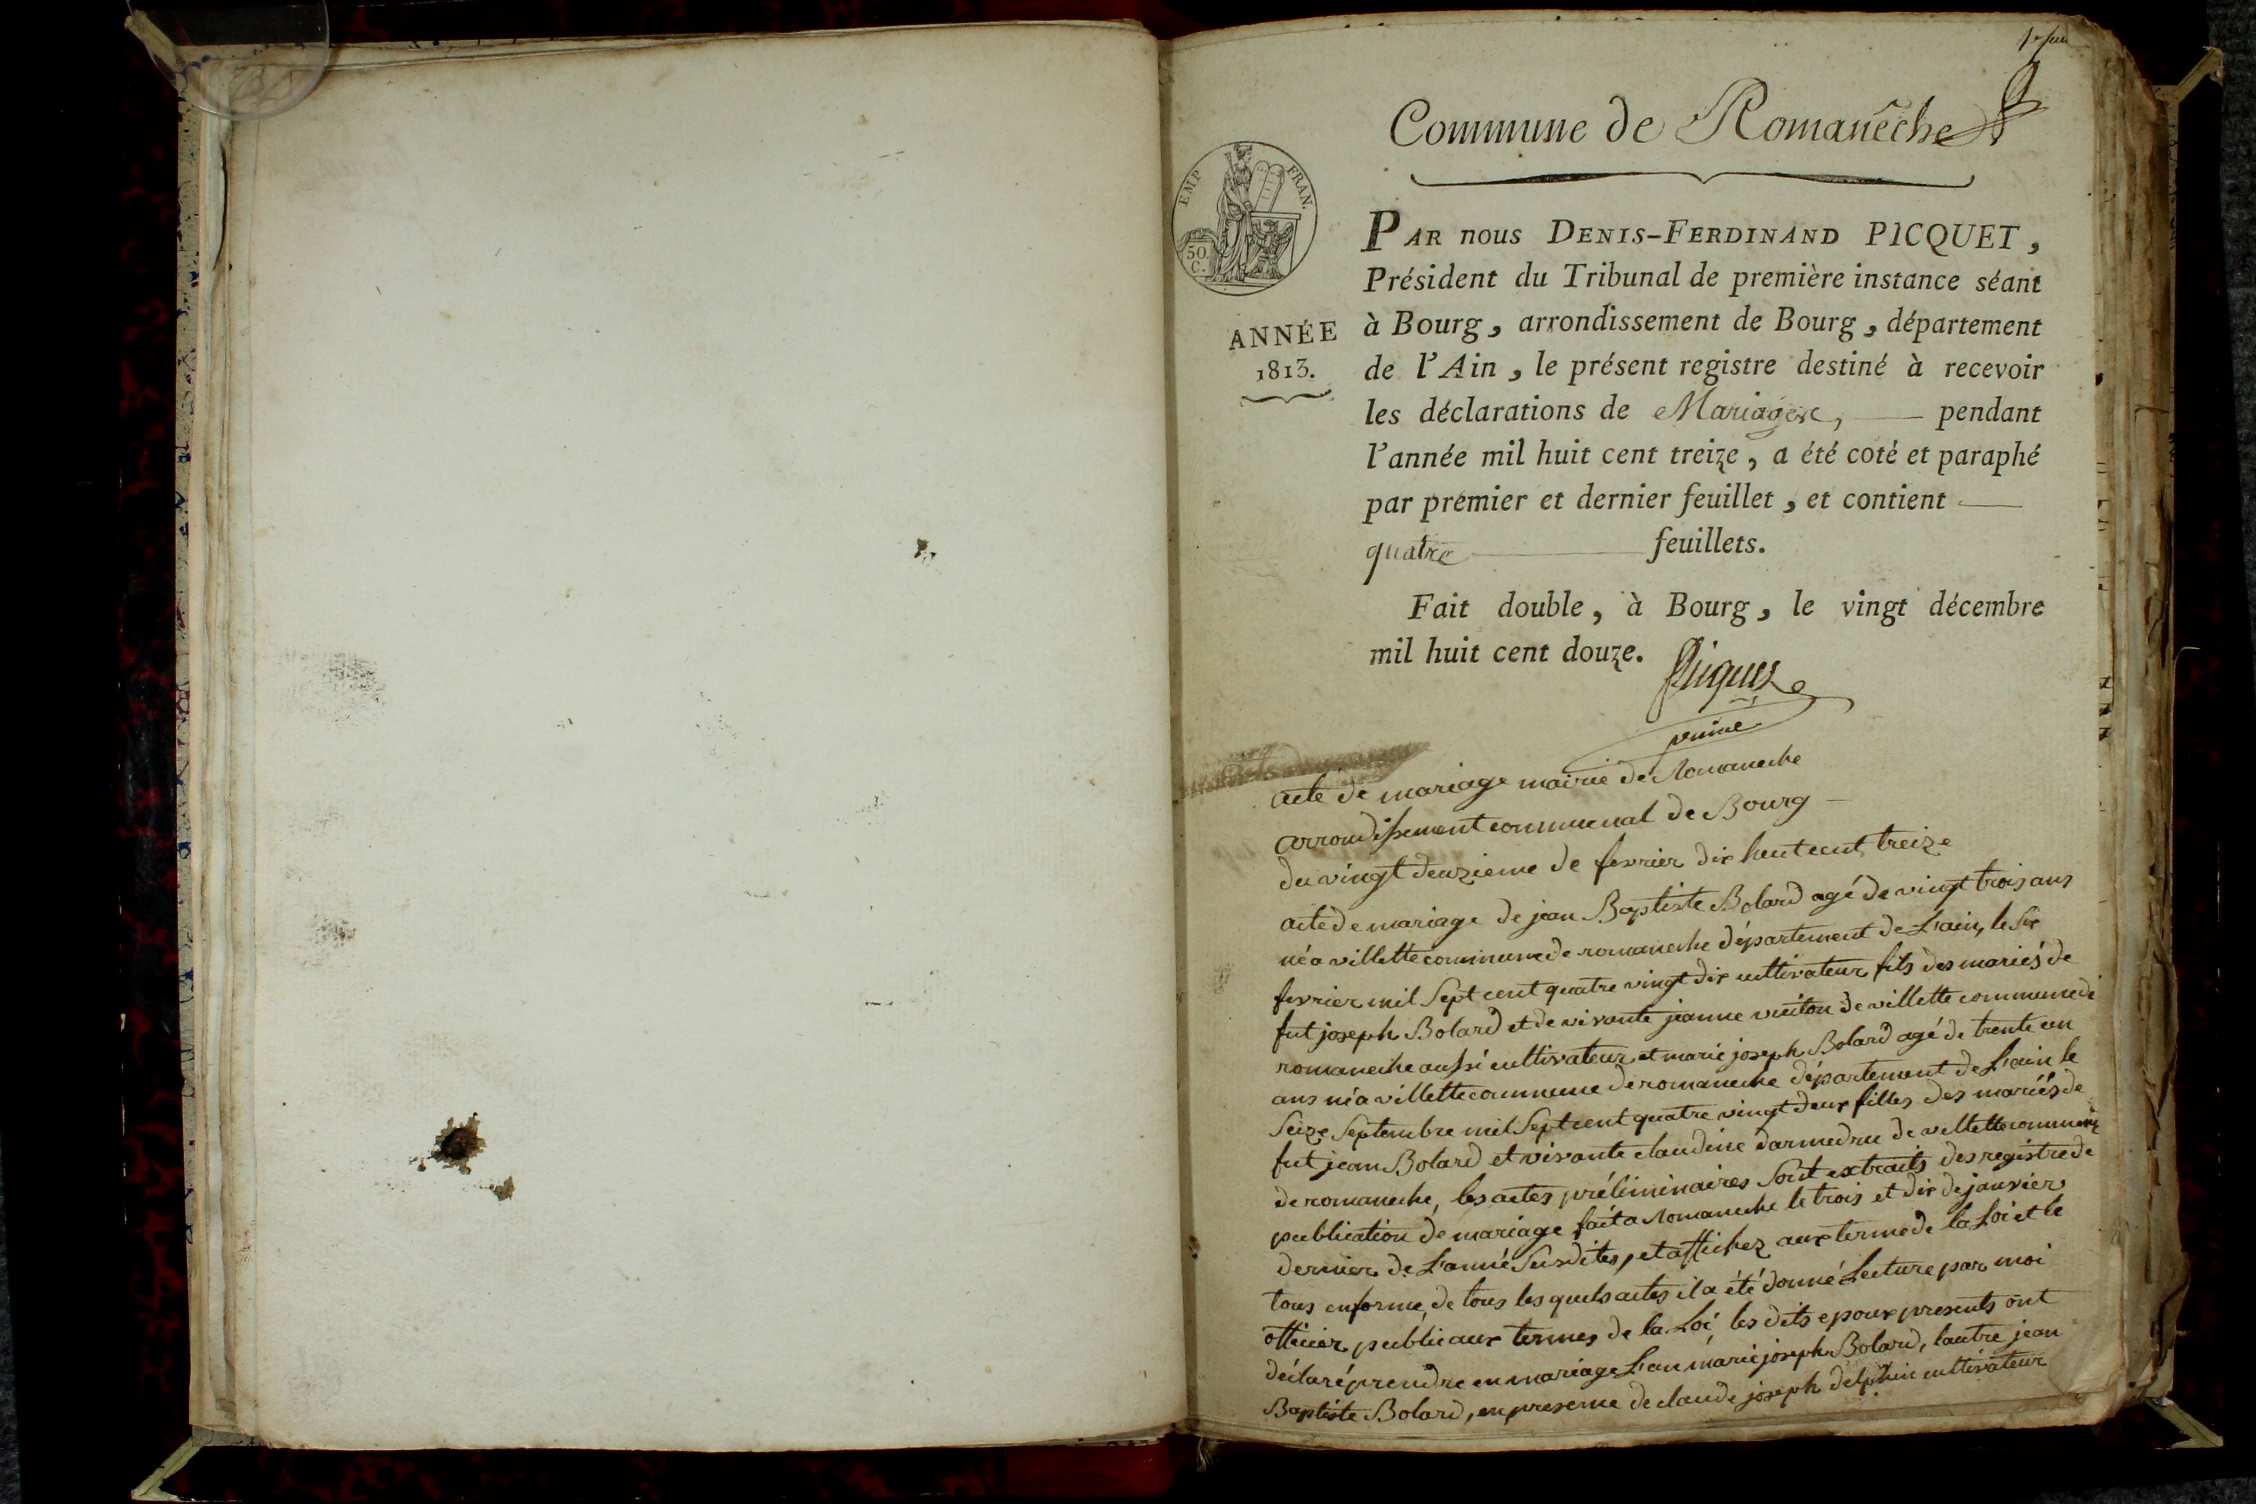 Commune de Romanêche
EMP. FRAN.
50.
C.
ANNÉE
1813.
PAR nous DENIS-FERDINAND PICQUET,
Président du Tribunal de première instance séant
à Bourg, arrondissement de Bourg, département
de l'Ain, le présent registre destiné à recevoir
les déclarations de Mariages, pendant
l'année mil huit cent treize, a été coté et paraphé
par premier et dernier feuillet, et contient
quatre feuillets.
Fait double, à Bourg, le vingt décembre
mil huit cent douze.
Picquet
acte de mariage mairie de Romaneche
arrondissement communal de Bourg
du vingt deuzieme de fevrier dix huit cent treize
acte de mariage de jean Baptiste Bolard agé de vingt trois ans
né a villette commune de romaneche département de L'ain, le six
fevrier mil sept cent quatre vingt dix cultivateur fils des mariés de
fut joseph Bolard et de vivante jeanne de villette commune de
romaneche aussi cultivateur et marie joseph Bolard agé de trente un
ans né a villette commune de romaneche département de L'ain le
seize septembre mil sept cent quatre vingt deux filles des mariés de
fut jean Bolard et vivante claudine darmedru de villette commune
de romaneche, les actes préliminaires sont extraits des registre de
publication de mariage fait a romaneche le trois et dix de janvier
dernier de L'année susdites, et affichez aux terme de la Loi et le
tous en forme, de tous les quels actes il a été donné Lecture par moi
officier public aux termes de la Loi les dits epoux presents ont
déclaré prendre en mariage L'un marie joseph Bolard, lautre jean
Baptiste Bolard, en presence de claude joseph delphin cultivateur